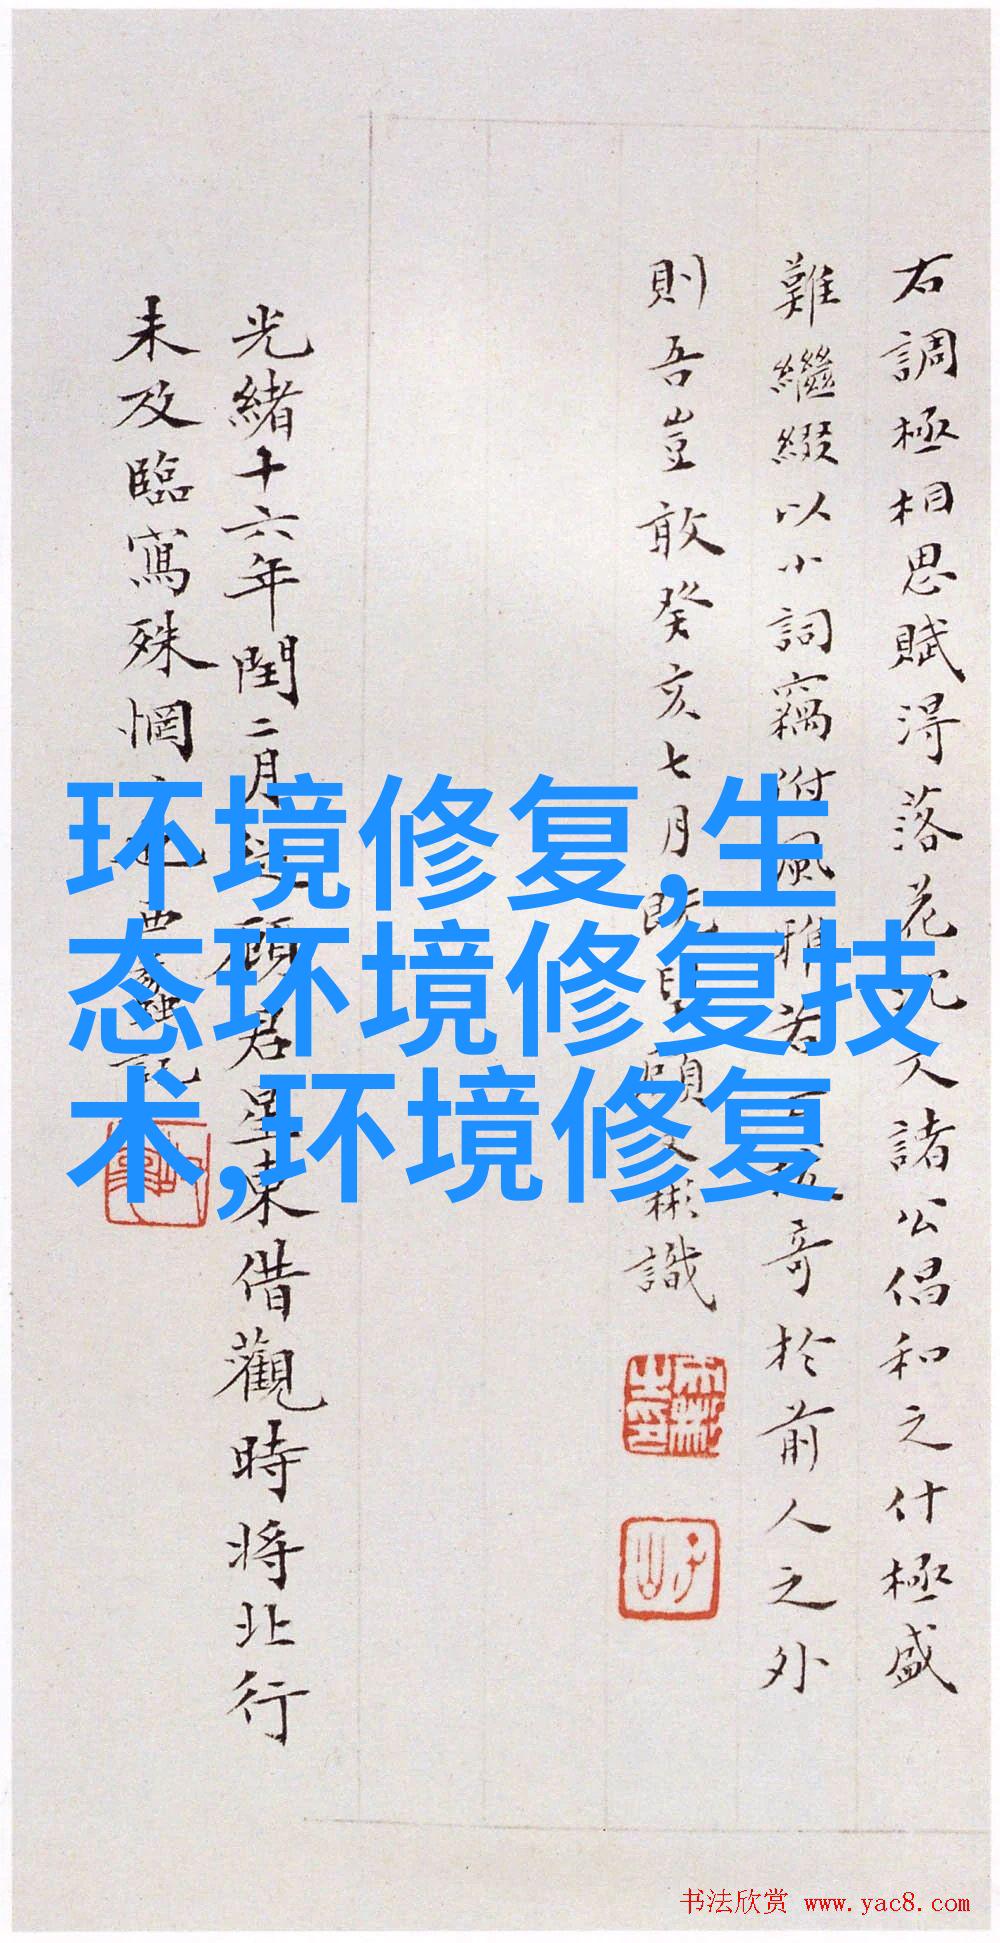 右調極相思賦得落花 諸公倡和之什極盛
難繼綴以小詞竊附風雅若 哥於前人之外
則吾豈敢癸亥七月既 顧文彬識
光緒十六年閏二月 顧君星東借觀時將北行
未及臨寫殊惘
环境修复,生
态环境修复技
术,环境修复
书法欣赏 www.yac8.com